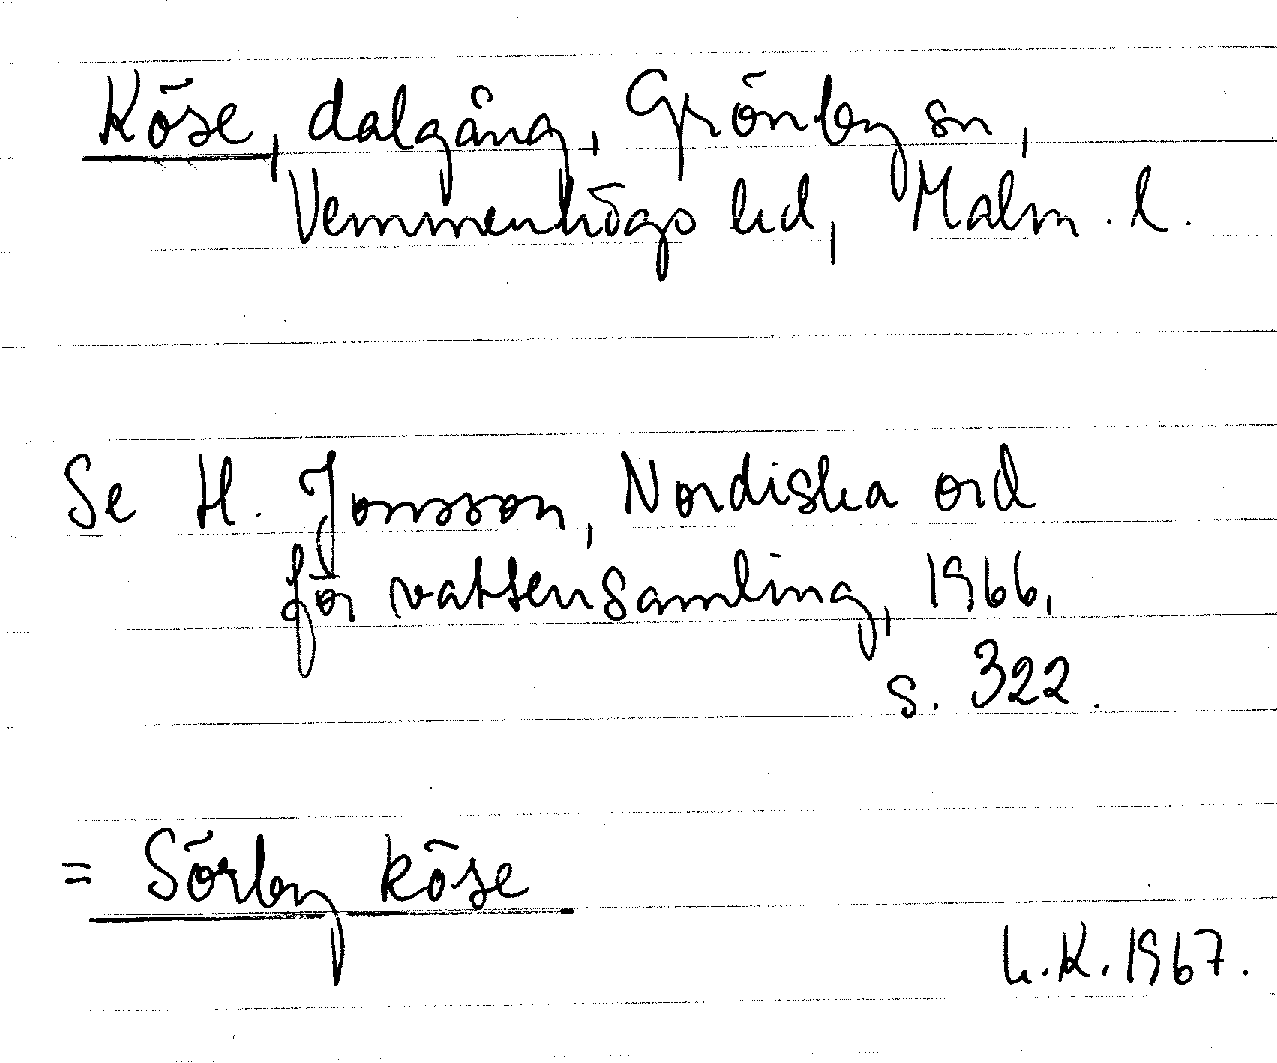 Köse, dalgång, Grönby sn,
Vemmenhögs hd, Malm. l.
Se H. Jonsson, Nordiska ord
för vattensamling, 1966,
s. 322.
= Sörby köse
L.K. 1967.